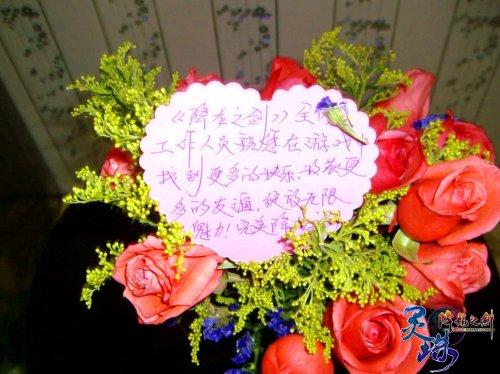 《降龙之剑》全体
工作人员祝您在游戏中
找到更多的快乐、收获更
多的友谊,绽放无限
魅力!完美降
灵珠
降龙之剑